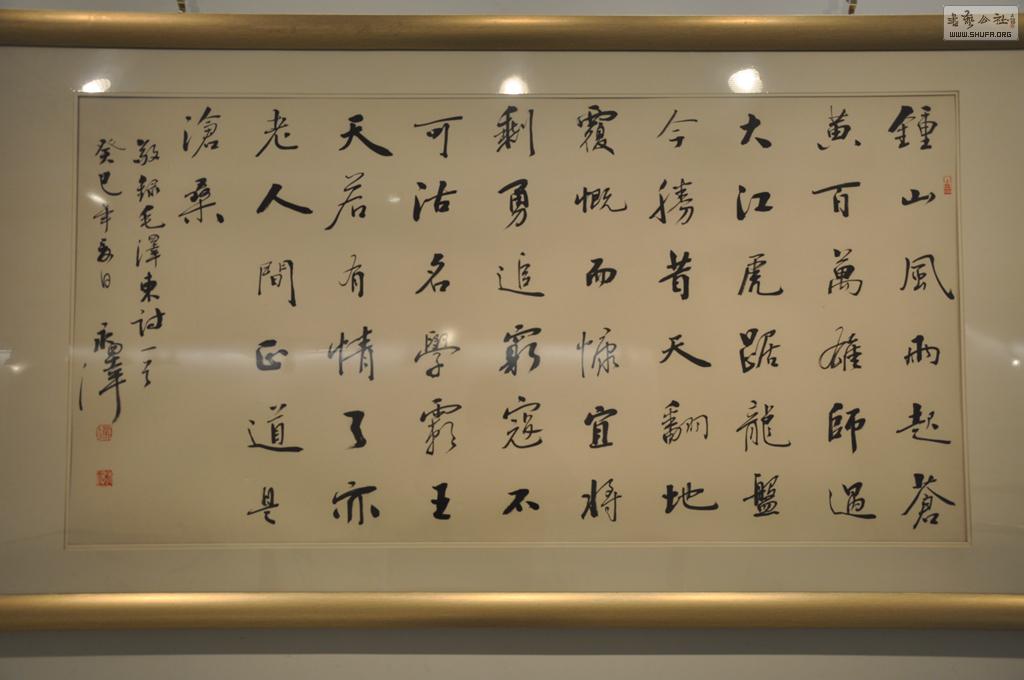 鍾山風雨起蒼
黄百萬雄師過
大江虎踞龍盤
今勝昔天翻地
覆慨而慷宜將
剩勇追窮寇不
可沽名學霸王
天若有情了亦
老人間正道是
滄桑
敬録毛澤東詩一首
癸巳年夏日
書藝公社
WWW.SHUFA.ORG